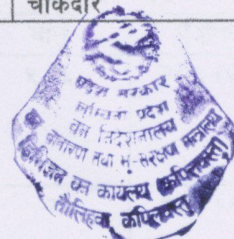 चौकिदार
प्रदेश सरकार
लुम्बिनी प्रदेश
वन निर्देशनालय
वन वातावरण तथा भू-संरक्षण मन्त्रालय
डिभिजन वन कार्यालय कपिलवस्तु
तौलिहवा, कपिलवस्तु